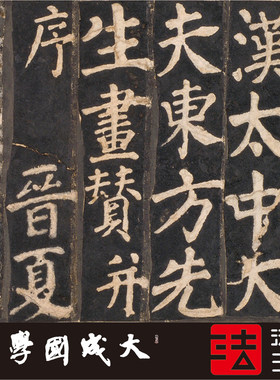 漢太中大
夫東方先
生畫賛并
序 晋夏
大成國學
法